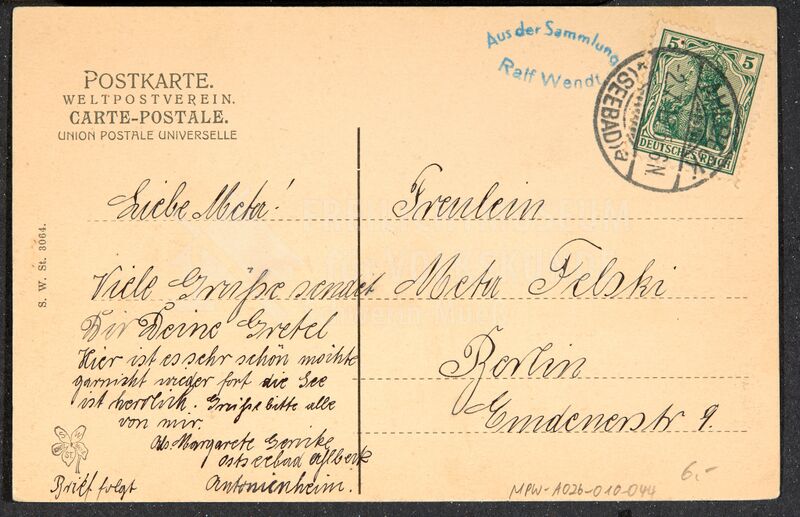 POSTKARTE.
WELTPOSTVEREIN.
CARTE-POSTALE.
UNION POSTALE UNIVERSELLE
Aus der Sammlung
Ralf Wendt
5 5
DEUTSCHES REICH
(SEEBAD) a
S. W. St. 3064.
Liebe Meta!
Viele Grüße sendet
Dir Deine Gretel
Hier ist es sehr schön möchte
garnicht wieder fort die See
ist herrlich. Grüße bitte alle
von mir.
Margarete
Ostseebad Ahlbeck
Antonienheim.
Brief folgt
Freulein
Meta Felski
Berlin
Emdenerstr 9.
MPW-A026-010-044
6,-